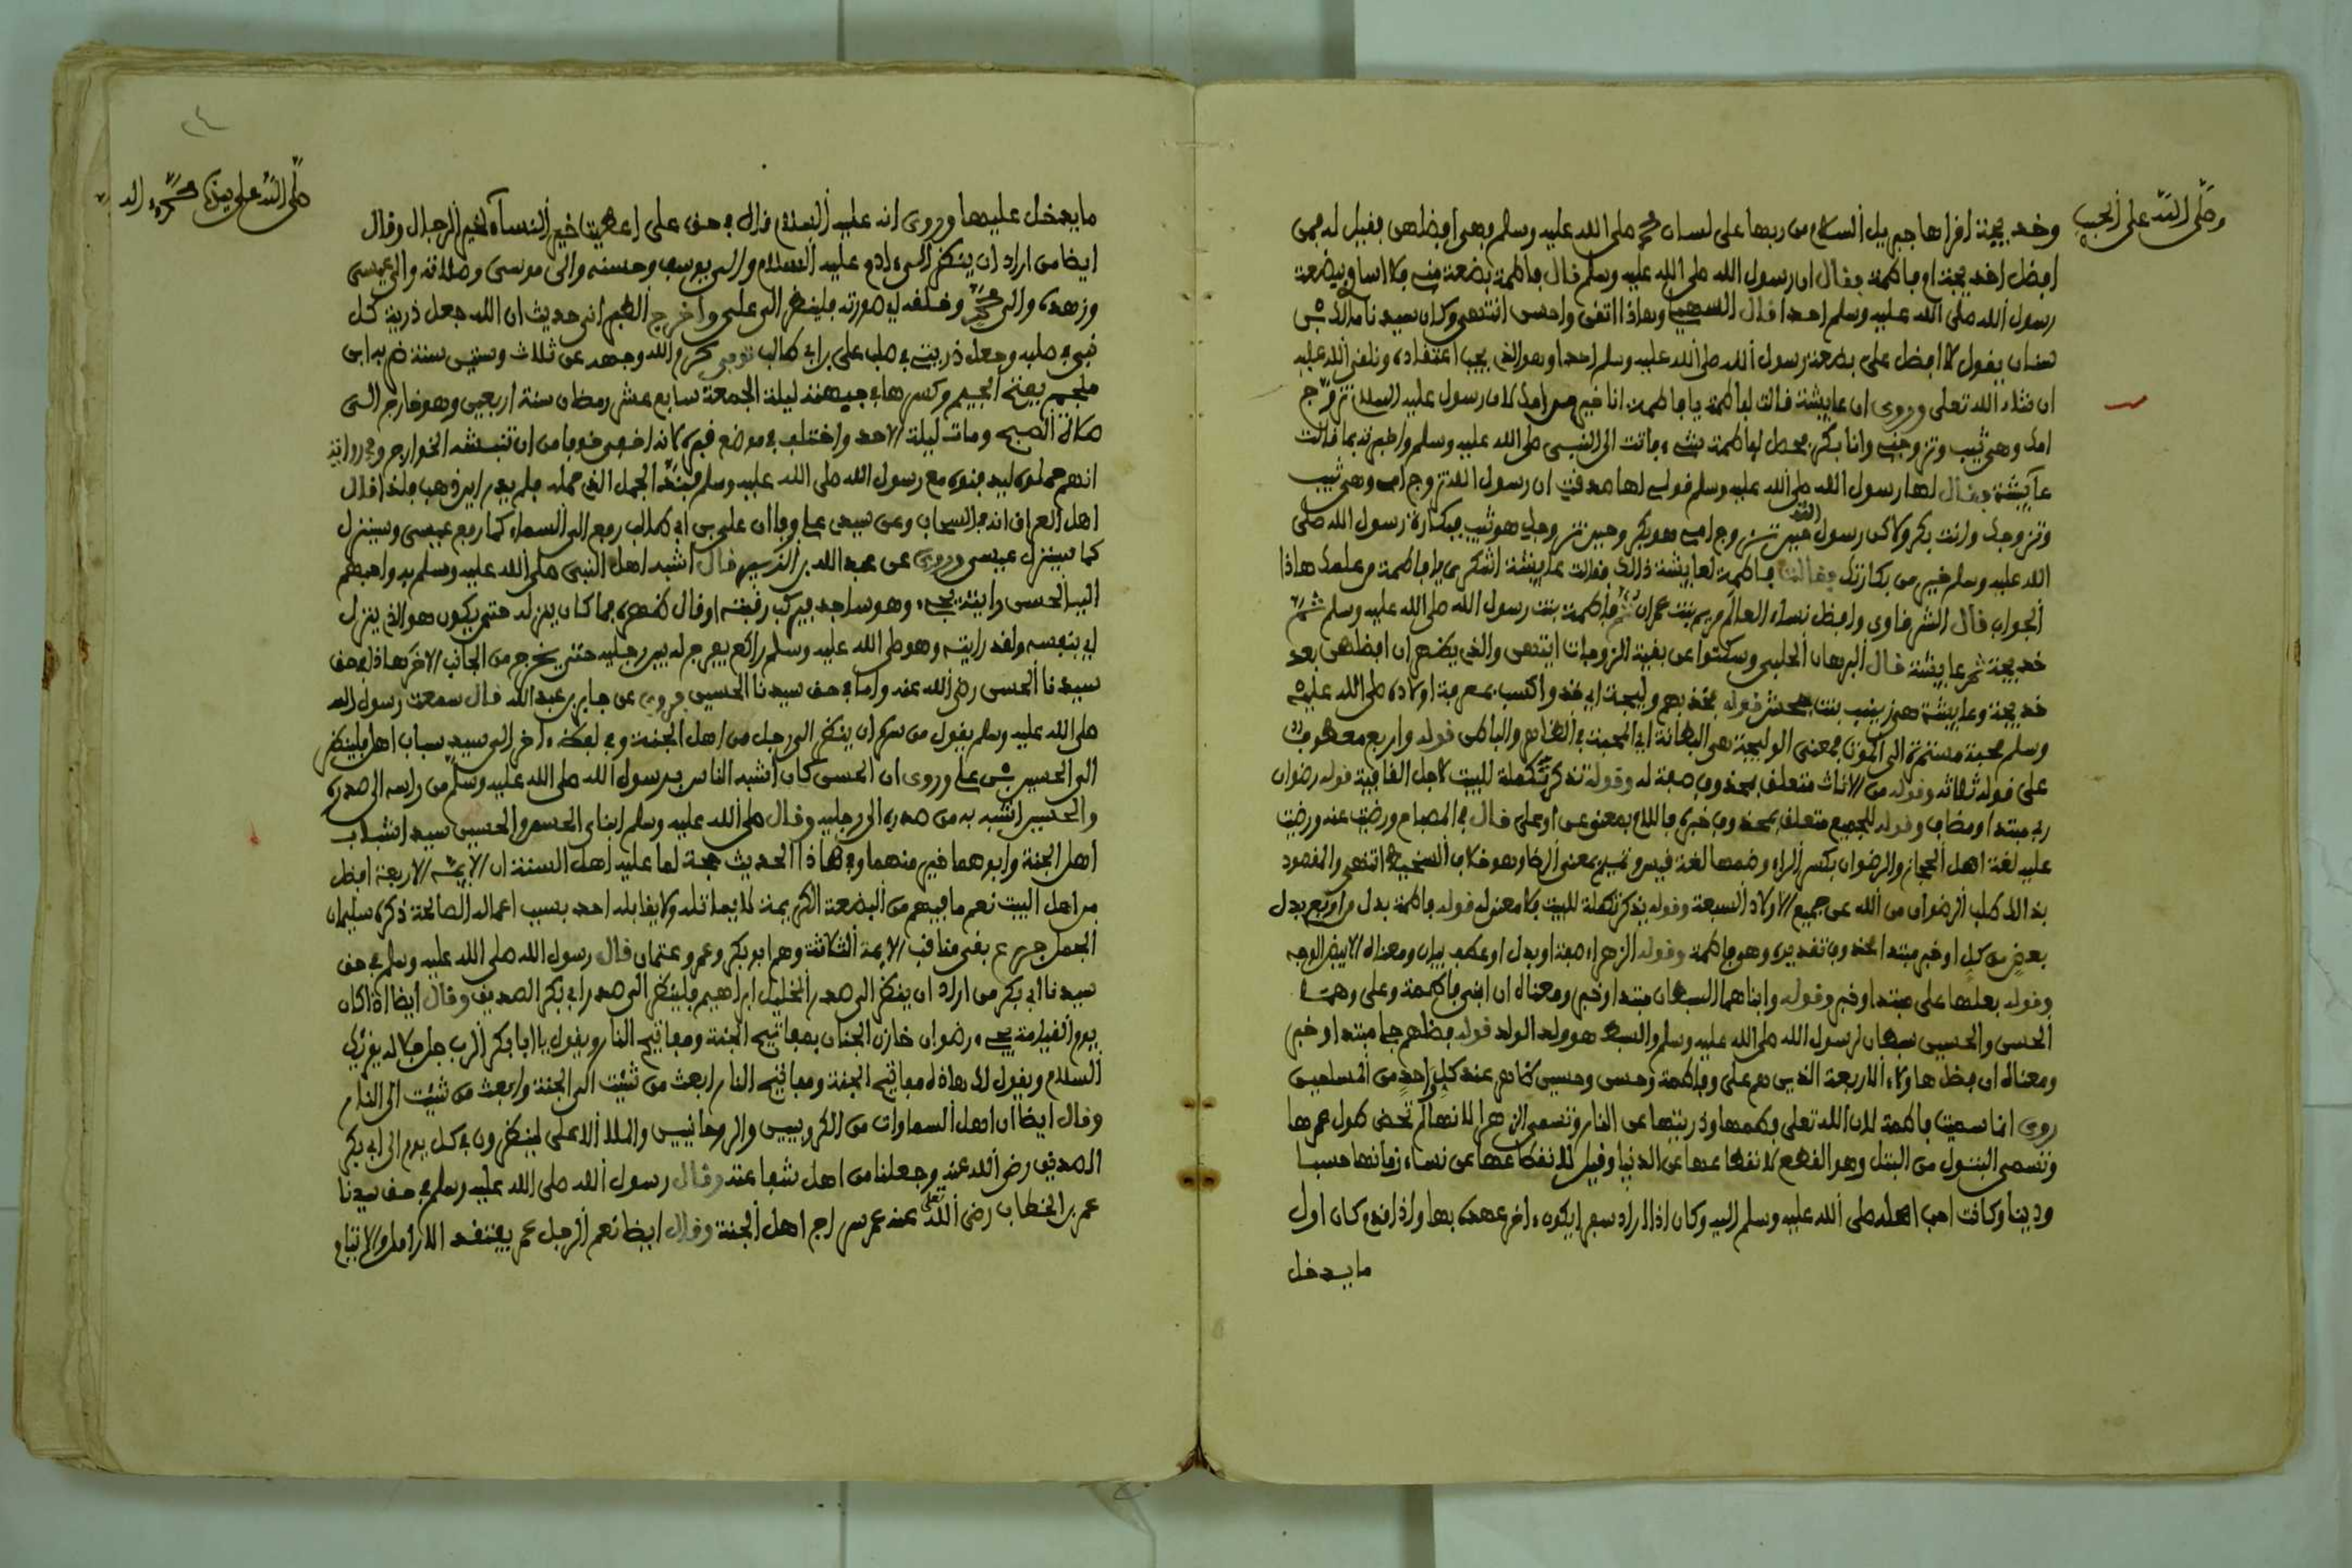 وصلى الله على الحبيب
وخديجة اقراها جبريل السلام من ربها على لسان محمد صلى الله عليه وسلم فهي افضلهن فقيل له فمن
افضل اخديجة ام فاطمة فقال ان رسول الله صلى الله عليه وسلم قال فاطمة بضعة مني فلا اساوي ببضعة
رسول الله صلى الله عليه وسلم احدا قال السهيلي وهاذا اتقن واحسن انتهى وكان سيدنا مالك بن
سنان يقول لا افضل على بضعة رسول الله صلى الله عليه وسلم احدا وهو الذي يجب اعتقاده ونلقى الله عليه
ان شاء الله تعلى وروي ان عايشة قالت لفاطمة يا فاطمة انا خير من امك لان رسول عليه السلام تزوج
امك وهي ثيب وتزوجني وانا بكر فحصل لفاطمة شيء فاتت الى النبي صلى الله عليه وسلم واخبرته بما قالت
عايشة فقال لها رسول الله صلى الله عليه وسلم قولي لها صدقت ان رسول الله تزوج امي وهي ثيب
وتزوجك وانت بكر ولاكن رسول الله حين تزوج امي هو بكر وحين تزوجك هو ثيب فبكارة رسول الله صلى
الله عليه وسلم خير من بكارتك فقالت فاطمة لعايشة ذالك فقالت عايشة اشكري يا فاطمة من علمك هاذا
الجواب قال الشرقاوي وافضل نساء العالم مريم بنت عمران ثم فاطمة بنت رسول الله صلى الله عليه وسلم ثم
خديجة ثم عايشة قال البرهان الحلبي وسكتوا عن بقية الزوجات انتهى والذي يظهر ان افضلهن بعد
خديجة وعايشة هي زينب بنت جحش قوله فخذ بهم وليجة اي خذ واكتسب بمعرفة اولاده صلى الله عليه
وسلم محبة مستمرة الى الموت فمعنى الوليجة هي البطانة اي المحبة في الظاهر والباطن قوله واربع معطوف
على قوله ثلاثة وقوله من الاناث متعلق بمحذوف صفة له وقوله تذكر تكملة للبيت لاجل القافية قوله رضوان
ربي مبتدا ومضاف وقوله للجميع متعلق بمحذوف خبره فاللام بمعنى عن او على قال في المصباح ورضيت عنه ورضيت
عليه لغة اهل الحجاز والرضوان بكسر الراء وضمها لغة قيس وتميم بمعنى الرضا وهو خلاف السخط انتهى والمقصود
بذالك طلب الرضوان من الله عن جميع الاولاد السبعة وقوله يذكر تكملة للبيت كما معنى له قوله فاطمة بدل من اربع بدل
بعض من كل او خبر مبتدا محذوف تقديره وهو فاطمة وقوله الزهراء صفة او بدل او عطف بيان ومعناه الابيض الوجه
وقوله بعلها علي مبتدا وخبر وقوله وابناهما السبطان مبتدا وخبر ومعناه ان ابني فاطمة وعلي وهما
الحسن والحسين سبطان لرسول الله صلى الله عليه وسلم والسبط هو ولد الولد قوله فضلهم جلي مبتدا وخبر
ومعناه ان فضل هاولاء الاربعة الذين هم علي وفاطمة وحسن وحسين ظاهر عند كل احد من المسلمين
روي انما سميت فاطمة لان الله تعلى فطمها وذريتها عن النار وتسمى الزهرا لانها لم تحض طول عمرها
وتسمى البتول من البتل وهو القطع لانقطاعها عن الدنيا وقيل لانقطاعها عن نساء زمانها حسبا
ودينا وكانت احب اهله صلى الله عليه وسلم اليه وكان اذا اراد سفرا يكون ءاخر عهده بها واذا قدم كان اول
ما يدخل
صلى الله على سيدنا محمد وءاله
ما يدخل عليها وروي انه عليه السلام قال في حق علي اعطيت خير النساء لخير الرجال وقال
ايضا من اراد ان ينظر الى ءادم عليه السلام والى يوسف وحسنه والى موسى وصلاته والى عيسى
وزهده والى محمد وخلقه في صورته فلينظر الى علي واخرج الطبراني حديث ان الله جعل ذرية كل
نبي في صلبه وجعل ذريتي في صلب علي بن ابي طالب توفي كرم الله وجهه عن ثلاث وستين سنة ضربه ابن
ملجم بفتح الجيم وكسرها في جبهته ليلة الجمعة سابع عشر رمضان سنة اربعين وهو خارج الى
صلاة الصبح ومات ليلة الاحد واختلف في موضع قبره لانه اخفي خوفا من ان تنبشه الخوارج وفي رواية
انهم حملوه ليدفنوه مع رسول الله صلى الله عليه وسلم فند الجمل الذي حمله فلم يدر اين ذهب فلذا قال
اهل العراق انه في السحاب وعن سيدي علي وفا ان علي بن ابي طالب رفع الى السماء كما رفع عيسى وسينزل
كما سينزل عيسى وروي عن عبد الله بن الزبير قال اشبه اهل النبي صلى الله عليه وسلم به واحبهم
اليه الحسن رايته يجيء وهو ساجد فيركب رقبته او قال ظهره فما كان ينزله حتى يكون هو الذي ينزل
اي بنفسه ولقد رايته وهو صلى الله عليه وسلم راكع يفرج له بين رجليه حتى يخرج من الجانب الاخر هاذا في حق
سيدنا الحسن رضي الله عنه واما في حق سيدنا الحسين فروي عن جابر بن عبد الله قال سمعت رسول الله
صلى الله عليه وسلم يقول من سره ان ينظر الى رجل من اهل الجنة وفي لفظ ءاخر الى سيد شباب اهل فلينظر
الى الحسين بن علي وروي ان الحسن كان اشبه الناس برسول الله صلى الله عليه وسلم من راسه الى صدره
والحسين اشبه به من صدره الى رجليه وقال صلى الله عليه وسلم ابناي الحسن والحسين سيدا شباب
اهل الجنة وابوهما خير منهما وفي هاذا الحديث حجة لما عليه اهل السنة ان الايمة الاربعة افضل
من اهل البيت نعم ما فيهم من البضعة الكريمة لا يعادله ولا يقابله احد بسبب اعماله الصالحة ذكره سليمان
الجمل جزع بقي مناقب الايمة الثلاثة وهم ابو بكر وعمر وعثمان قال رسول الله صلى الله عليه وسلم في حق
سيدنا ابي بكر من اراد ان ينظر الى صدر الخليل ابراهيم فلينظر الى صدر ابي بكر الصديق وقال ايضا اذا كان
يوم القيامة يجيء رضوان خازن الجنان بمفاتيح الجنة ومفاتيح النار ويقول يا ابا بكر الرب جل جلاله يقرئك
السلام ويقول لك هاذه مفاتيح الجنة ومفاتيح النار ابعث من شئت الى الجنة وابعث من شئت الى النار
وقال ايضا ان اهل السماوات من الكروبيين والروحانيين والملا الاعلى لينظرون في كل يوم الى ابي بكر
الصديق رضي الله عنه وجعلنا من اهل شفاعته وقال رسول الله صلى الله عليه وسلم في حق سيدنا
عمر بن الخطاب رضي الله تعلى عنه عمر سراج اهل الجنة وقال ايضا نعم الرجل عمر يفتقد الارامل والايتام
٢٤